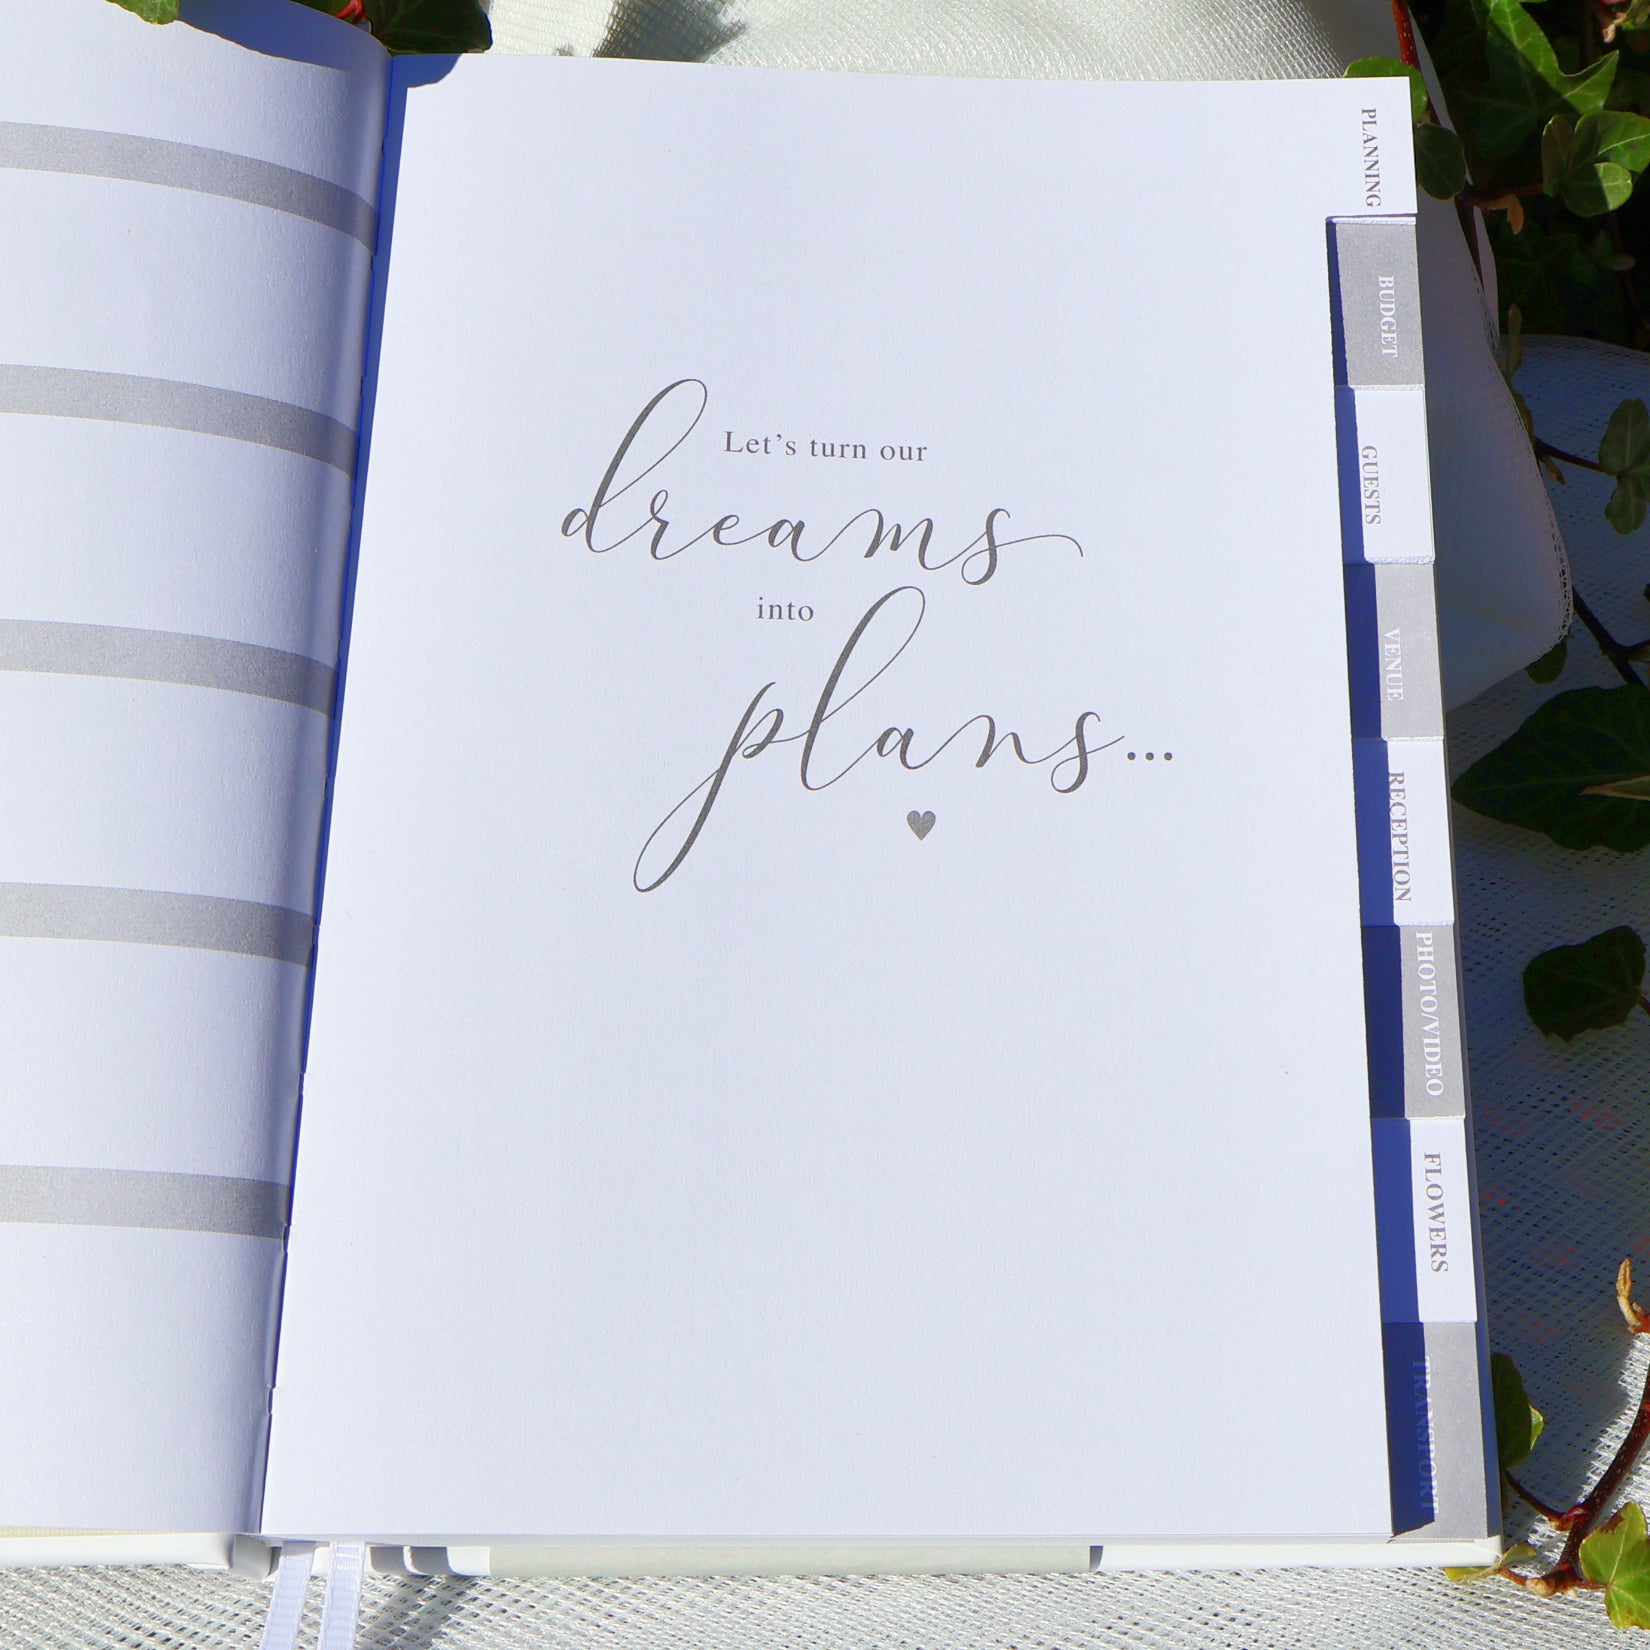 Let's turn our
dreams
into
plans...
PLANNING
BUDGET
GUESTS
VENUE
RECEPTION
PHOTO/VIDEO
FLOWERS
TRANSPORT